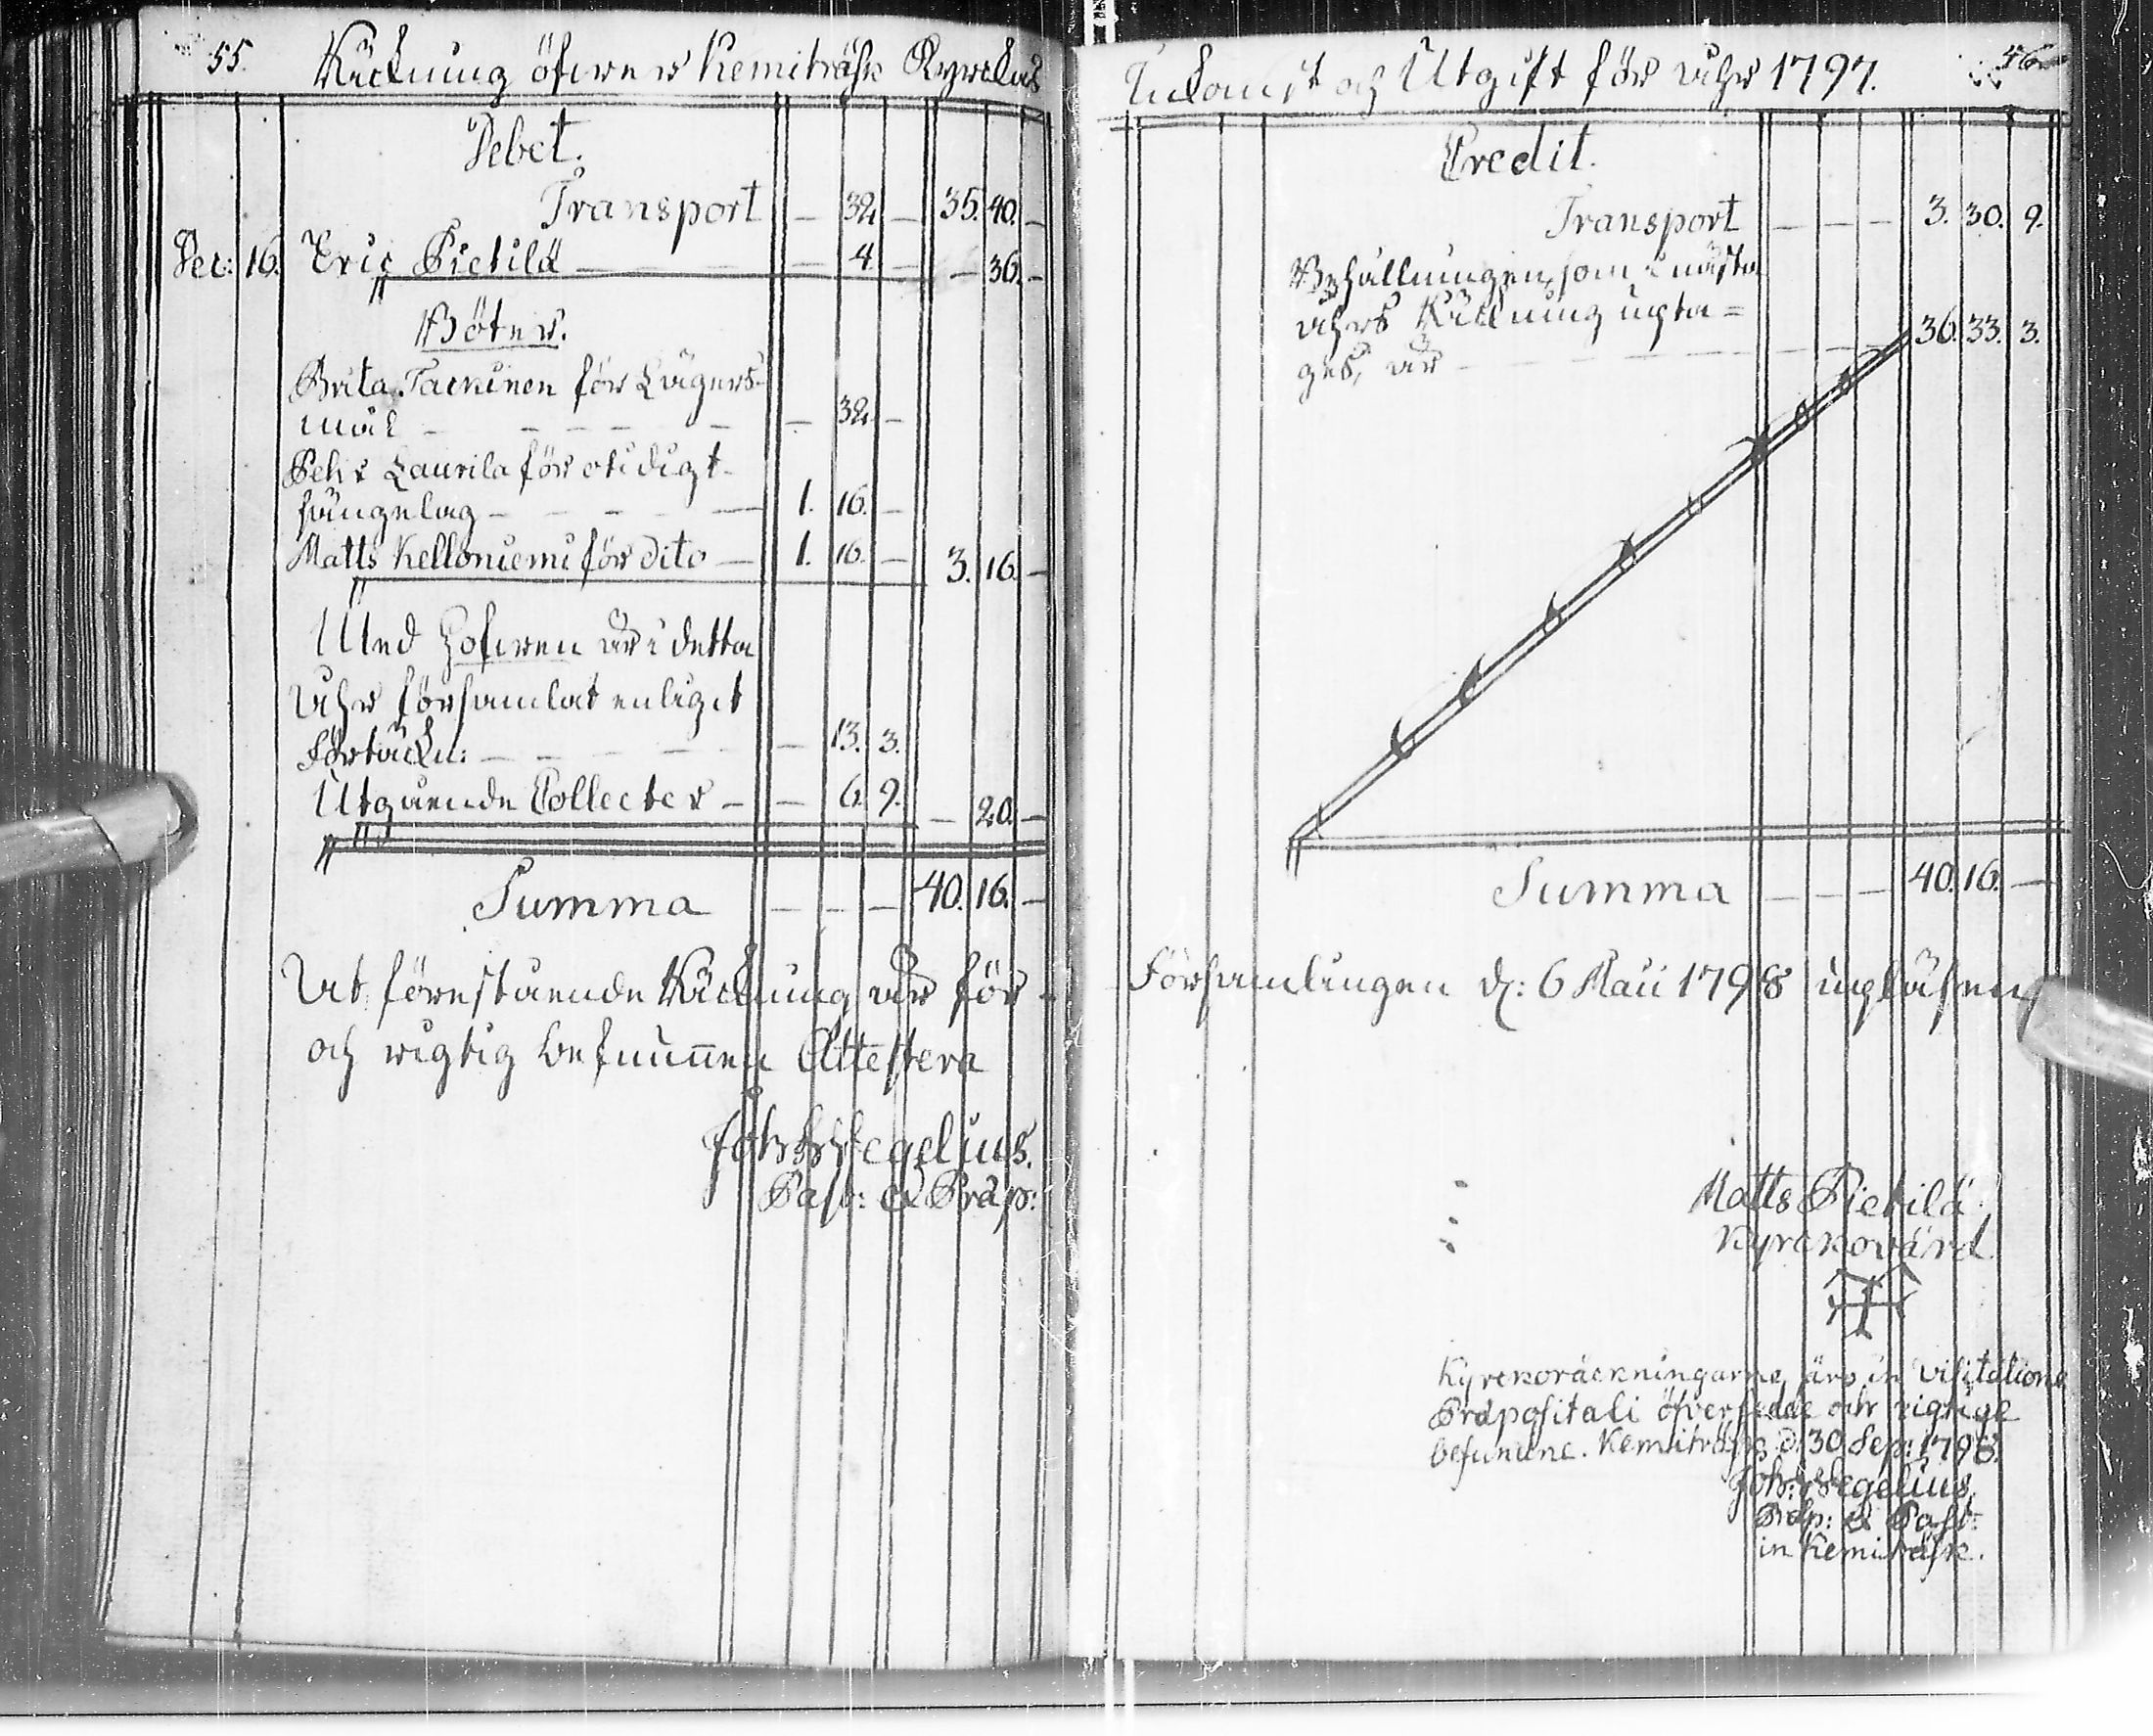 55. Räckning öfwer Kemiträsk Kyrckas
Debet.
Transport — 32. — 35. 40. —
Dec: 16. Eric Pietilä — — 4. — — 36. —
Böter.
Brita Tackinen för Lägers-
mål — — — — — — 32. —
Pehr Laurila för otidigt
sängelag — — — — 1. 16. —
Matts Kelloniemi för dito — 1. 16. — 3. 16. —
Med Hofwen är i detta
åhr församlat enligit
förtäckn: — — — — — 13. 3.
Utgående Collecter — — 6. 9. — 20. —
Summa — — — 40. 16. —
At förestående Räckning är för
och rigtig befunnen Attestera
Joh: Wegelius.
Past: & Præp:
Inkomst och Utgift för åhr 1797. 56
Credit.
Transport — — — 3. 30. 9.
Behållningen, som i nästa
åhrs Räckning upta=
ges, är — — — — 36. 33. 3.
Summa — — — 40. 16. —
Församlingen d: 6 Maii 1798 upläsen
Matts Pietilä
Kyrckovärd
Kyrckoräckningarne äro in Visitatione
Præpositali öfversedde och rigtige
befundne. Kemiträsk d. 30 Sep: 1798.
Joh: Wegelius
Præp: & Past:
in Kemiträsk.